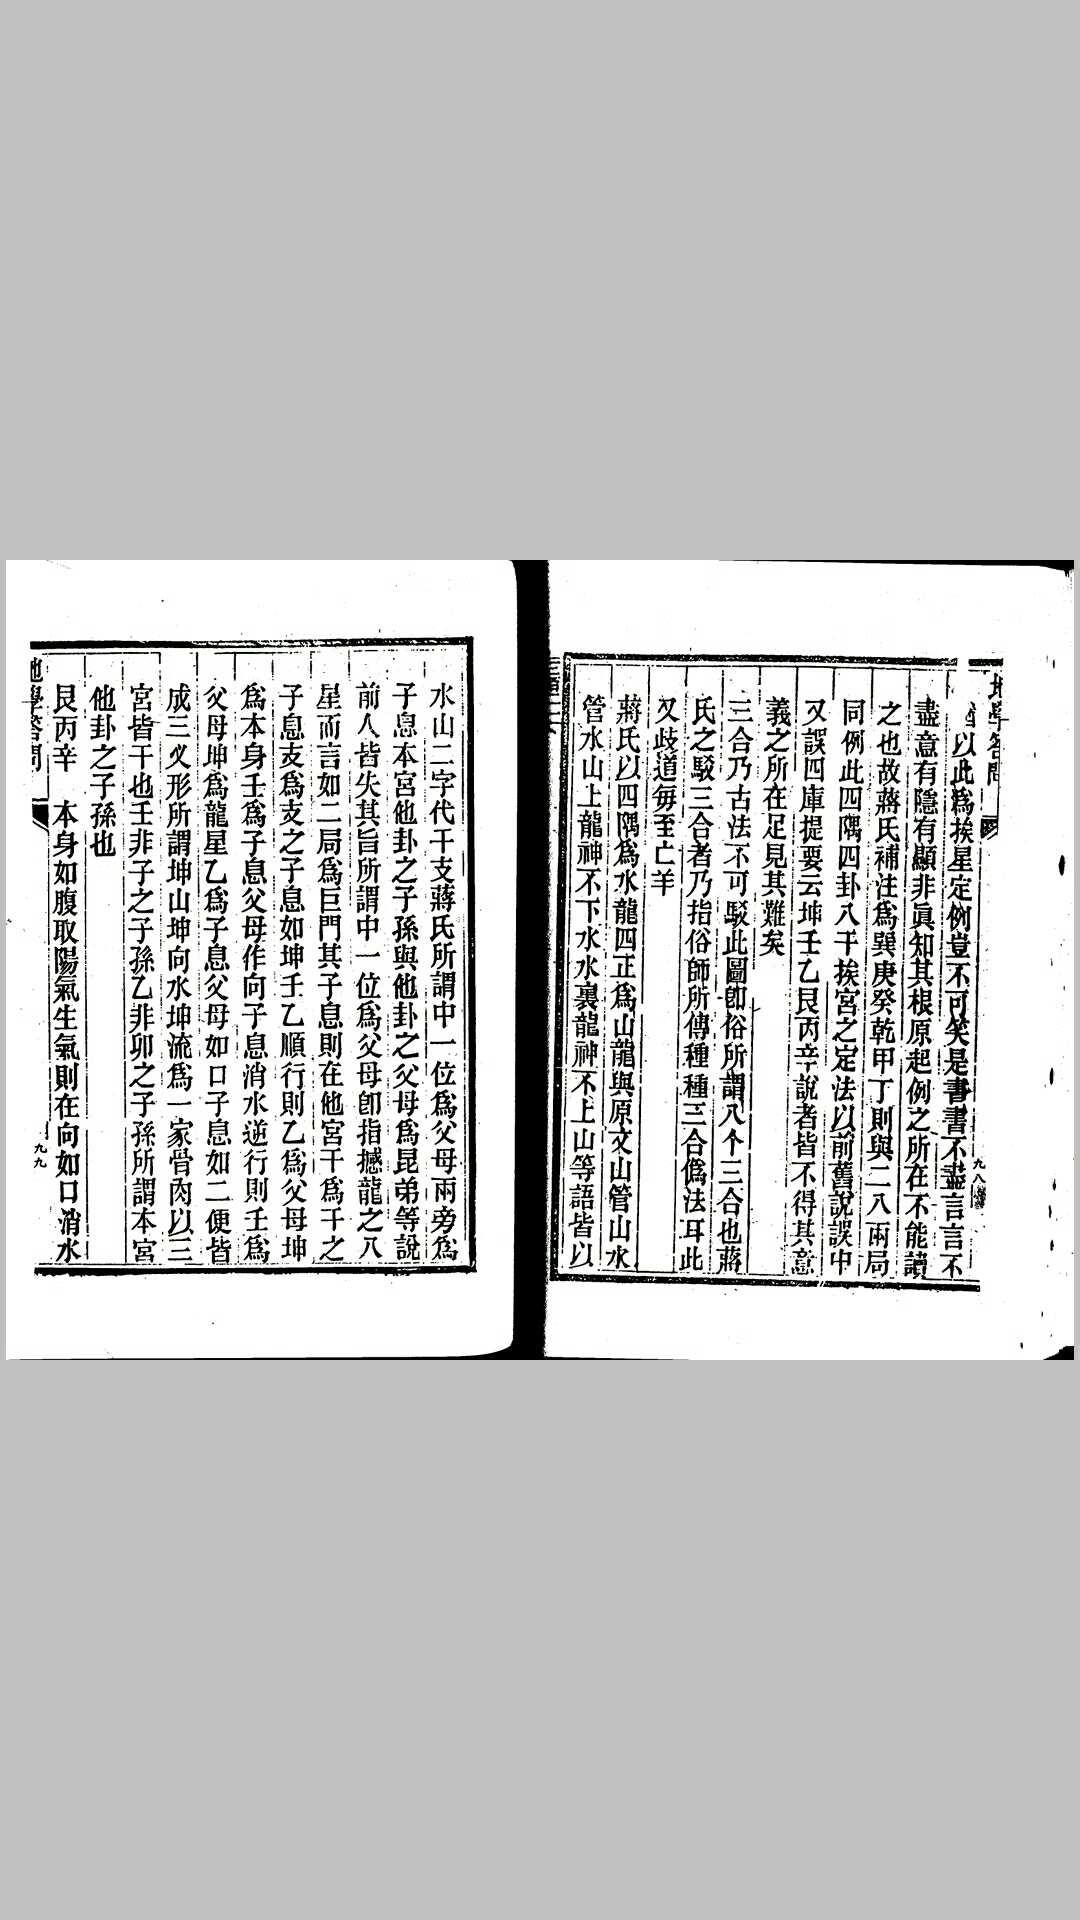 地學答問
以此爲挨星定例豈不可笑是書書不盡言言不
盡意有隱有顯非眞知其根原起例之所在不能讀
之也故蔣氏補注爲巽庚癸乾甲丁則與二八兩局
同例此四隅四卦八干挨宮之定法以前舊說誤中
又誤四庫提要云坤壬乙艮丙辛說者皆不得其意
義之所在足見其難矣
三合乃古法不可駁此圖卽俗所謂八个三合也蔣
氏之駁三合者乃指俗師所傳種種三合僞法耳此
又歧道每至亡羊
蔣氏以四隅爲水龍四正爲山龍與原文山管山水
管水山上龍神不下水水裏龍神不上山等語皆以
九八
水山二字代干支蔣氏所謂中一位爲父母兩旁爲
子息本宮他卦之子孫與他卦之父母爲昆弟等說
前人皆失其旨所謂中一位爲父母卽指撼龍之八
星而言如二局爲巨門其子息則在他宮干爲干之
子息支爲支之子息如坤壬乙順行則乙爲父母坤
爲本身壬爲子息父母作向子息消水逆行則壬爲
父母坤爲龍星乙爲子息父母如口子息如二便皆
成三叉形所謂坤山坤向水坤流爲一家骨肉以三
宮皆干也壬非子之子孫乙非卯之子孫所謂本宮
他卦之子孫也
艮丙辛　本身如腹取陽氣生氣則在向如口消水
地學答問
九九